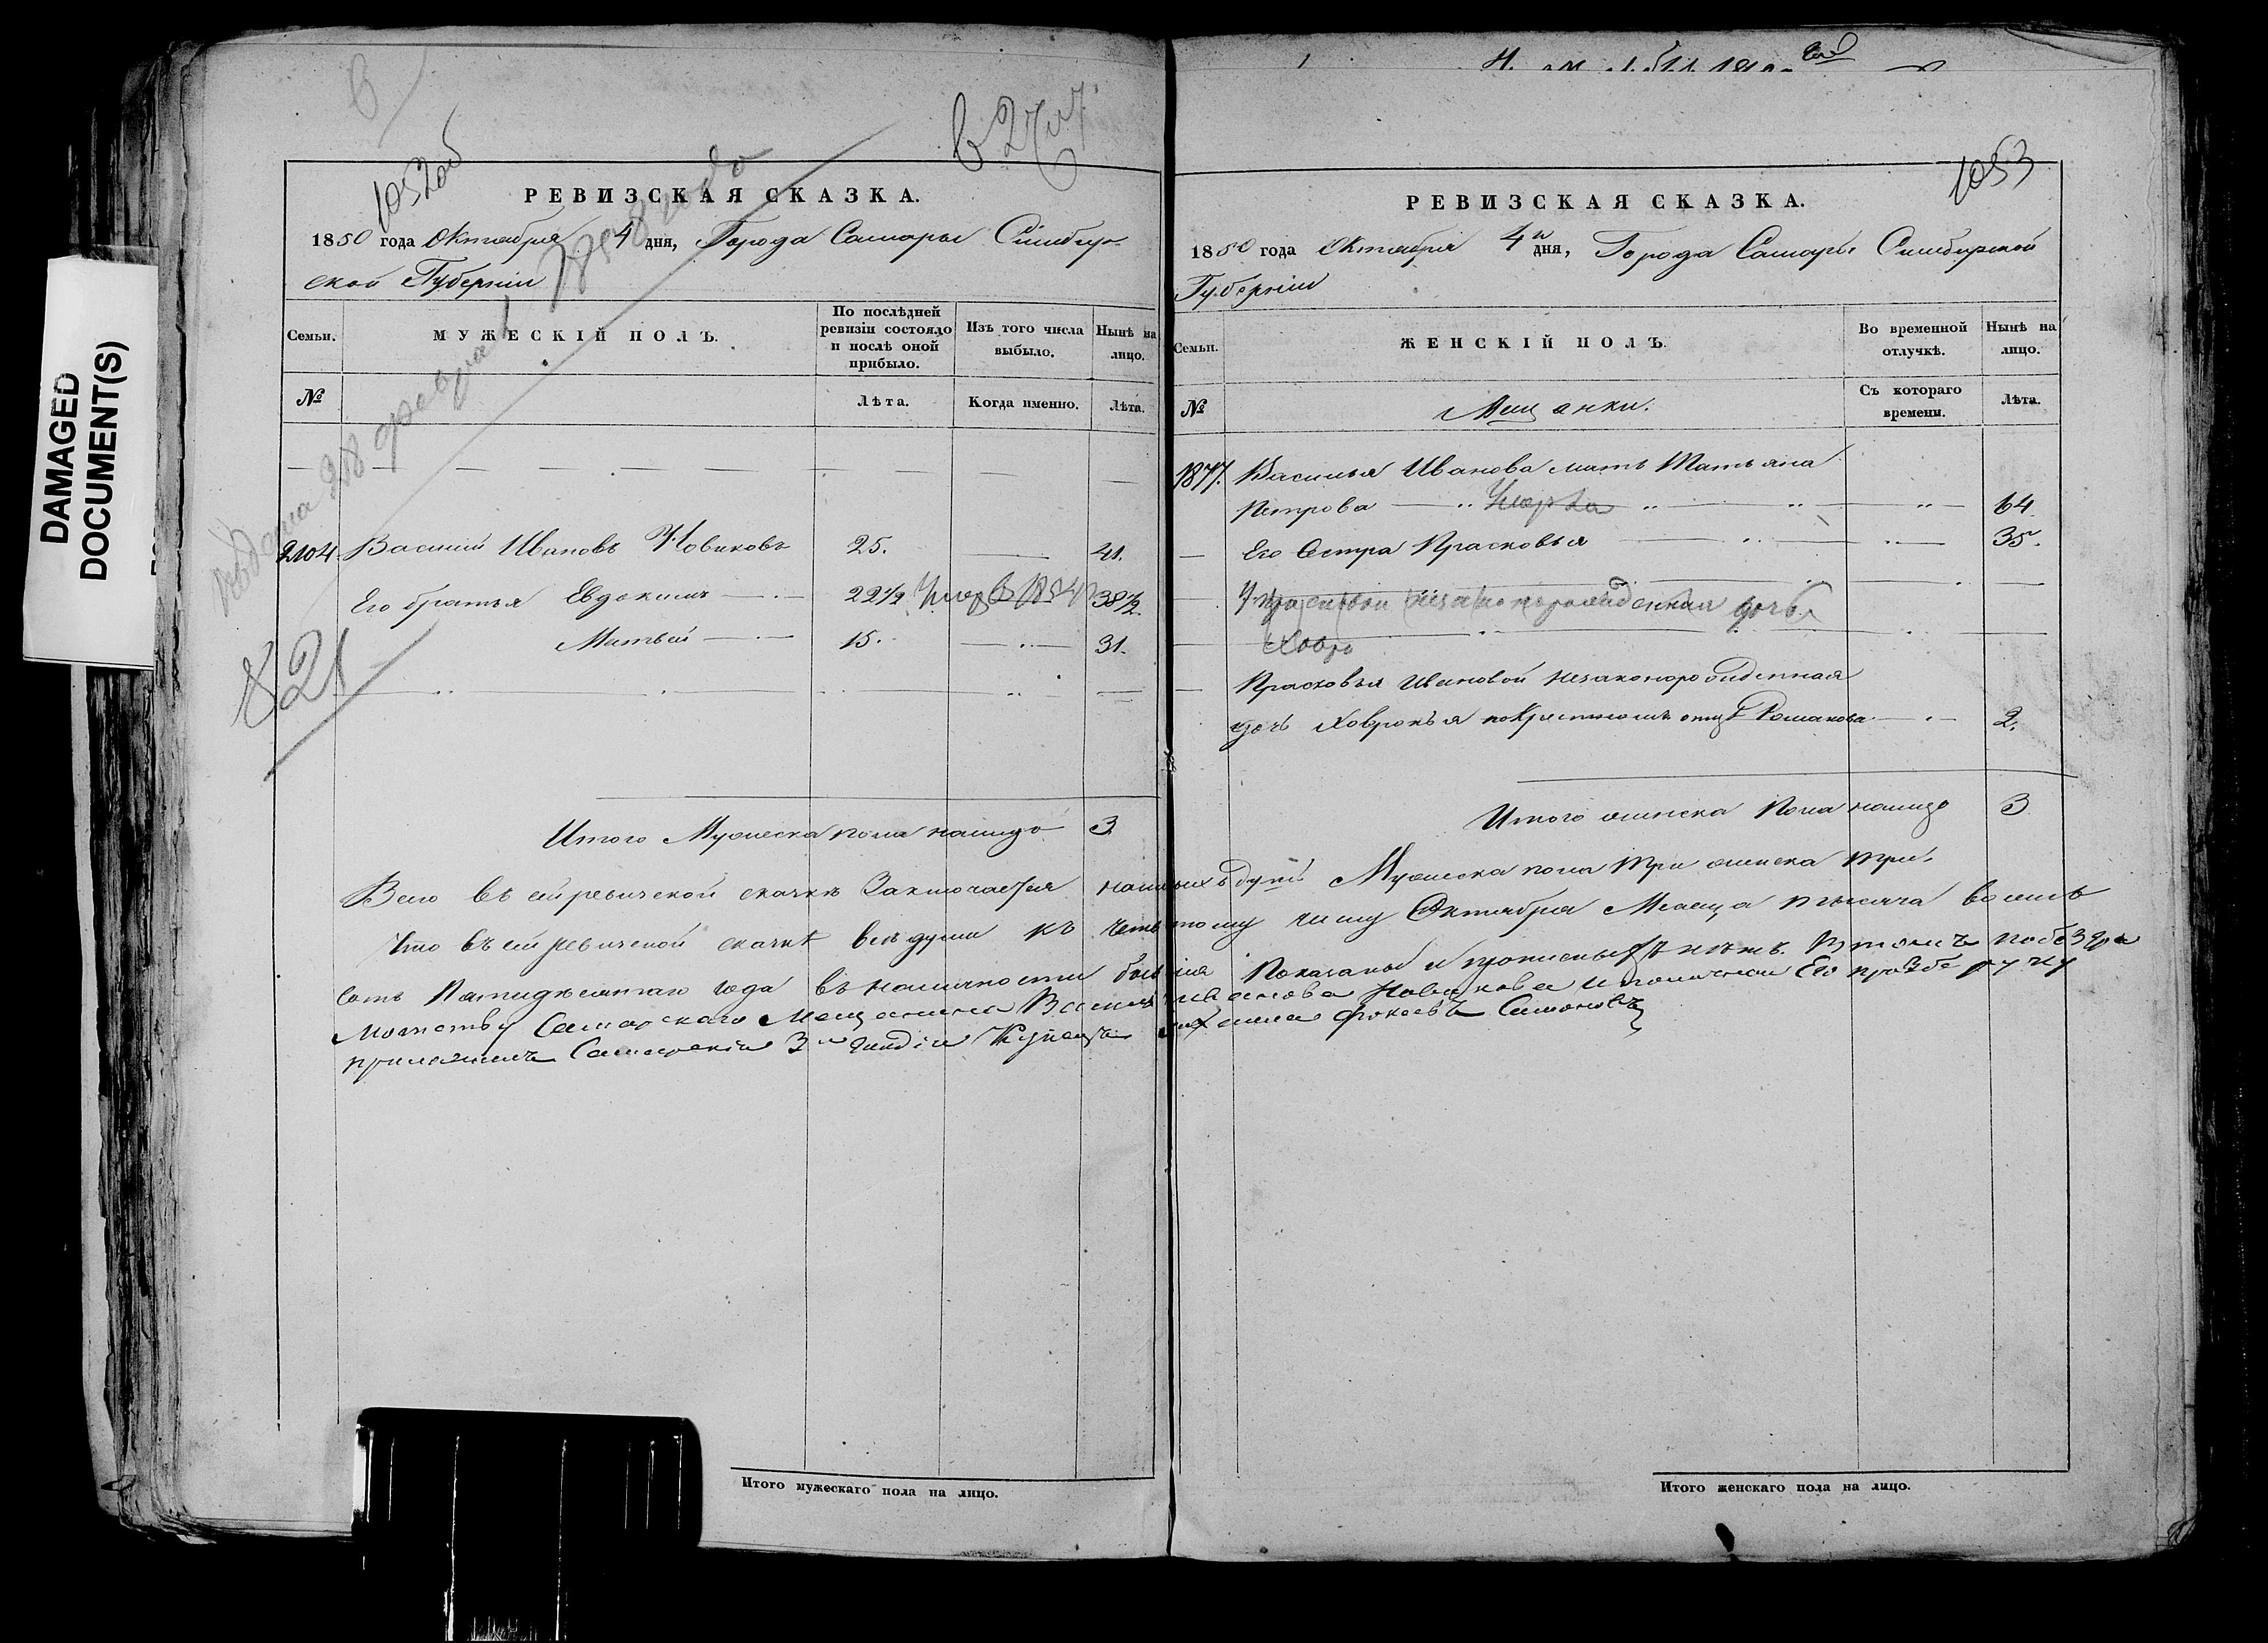 DAMAGED
DOCUMENT(S)
1052 об
РЕВИЗСКАЯ СКАЗКА.
1850 года Октября 4 дня, Города Самары Симбир-
ской Губернии
Семьи.
МУЖЕСКІЙ ПОЛЪ.
По послѣдней
ревизіи состояло
и послѣ оной
прибыло.
Изъ того числа
выбыло.
Нынѣ на
лицо.
№
Лѣта.
Когда именно.
Лѣта.
2104 Василий Ивановъ Новиковъ 25. 41.
Его братья Евдокимъ 22½ Умеръ 38½.
Матвей 15. 31.
821
Итого Мужеска пола налицо 3
1053
РЕВИЗСКАЯ СКАЗКА.
1850 года Октября 4 дня, Города Самары Симбирской
Губернии
Семьи.
ЖЕНСКІЙ ПОЛЪ.
Во временной
отлучкѣ.
Нынѣ на
лицо.
№
Мещанки.
Съ котораго
времени.
Лѣта.
1877. Василья Иванова мать Татьяна
Петрова Умерла 64
Его Сестра Прасковья 35.
незаконорожденная дочь
Хавро
Прасковьи Ивановой незаконорожденная
дочь Хавронья по Крестномъ отцѣ Романова 2.
Итого женска Пола налицо 3
Всего въ сей ревиской сказкѣ Заключается наличныхъ душъ Мужеска пола три женска три.
Что въ сей ревиской сказкѣ всѣ души къ четвертому числу Октября Месяца тысяча восемь
сотъ Пятидесятаго года въ наличности бывшия Показаны и прописныхъ нѣтъ. Въ томъ побезгра
мотству Самарскаго Мещанина Василья Иванова Новикова и поличной Его прозбе руку
приложилъ Самарский 3й гилдіи Купецъ Фокеевъ Симоновъ
Итого мужескаго пола на лицо.
Итого женскаго пола на лицо.